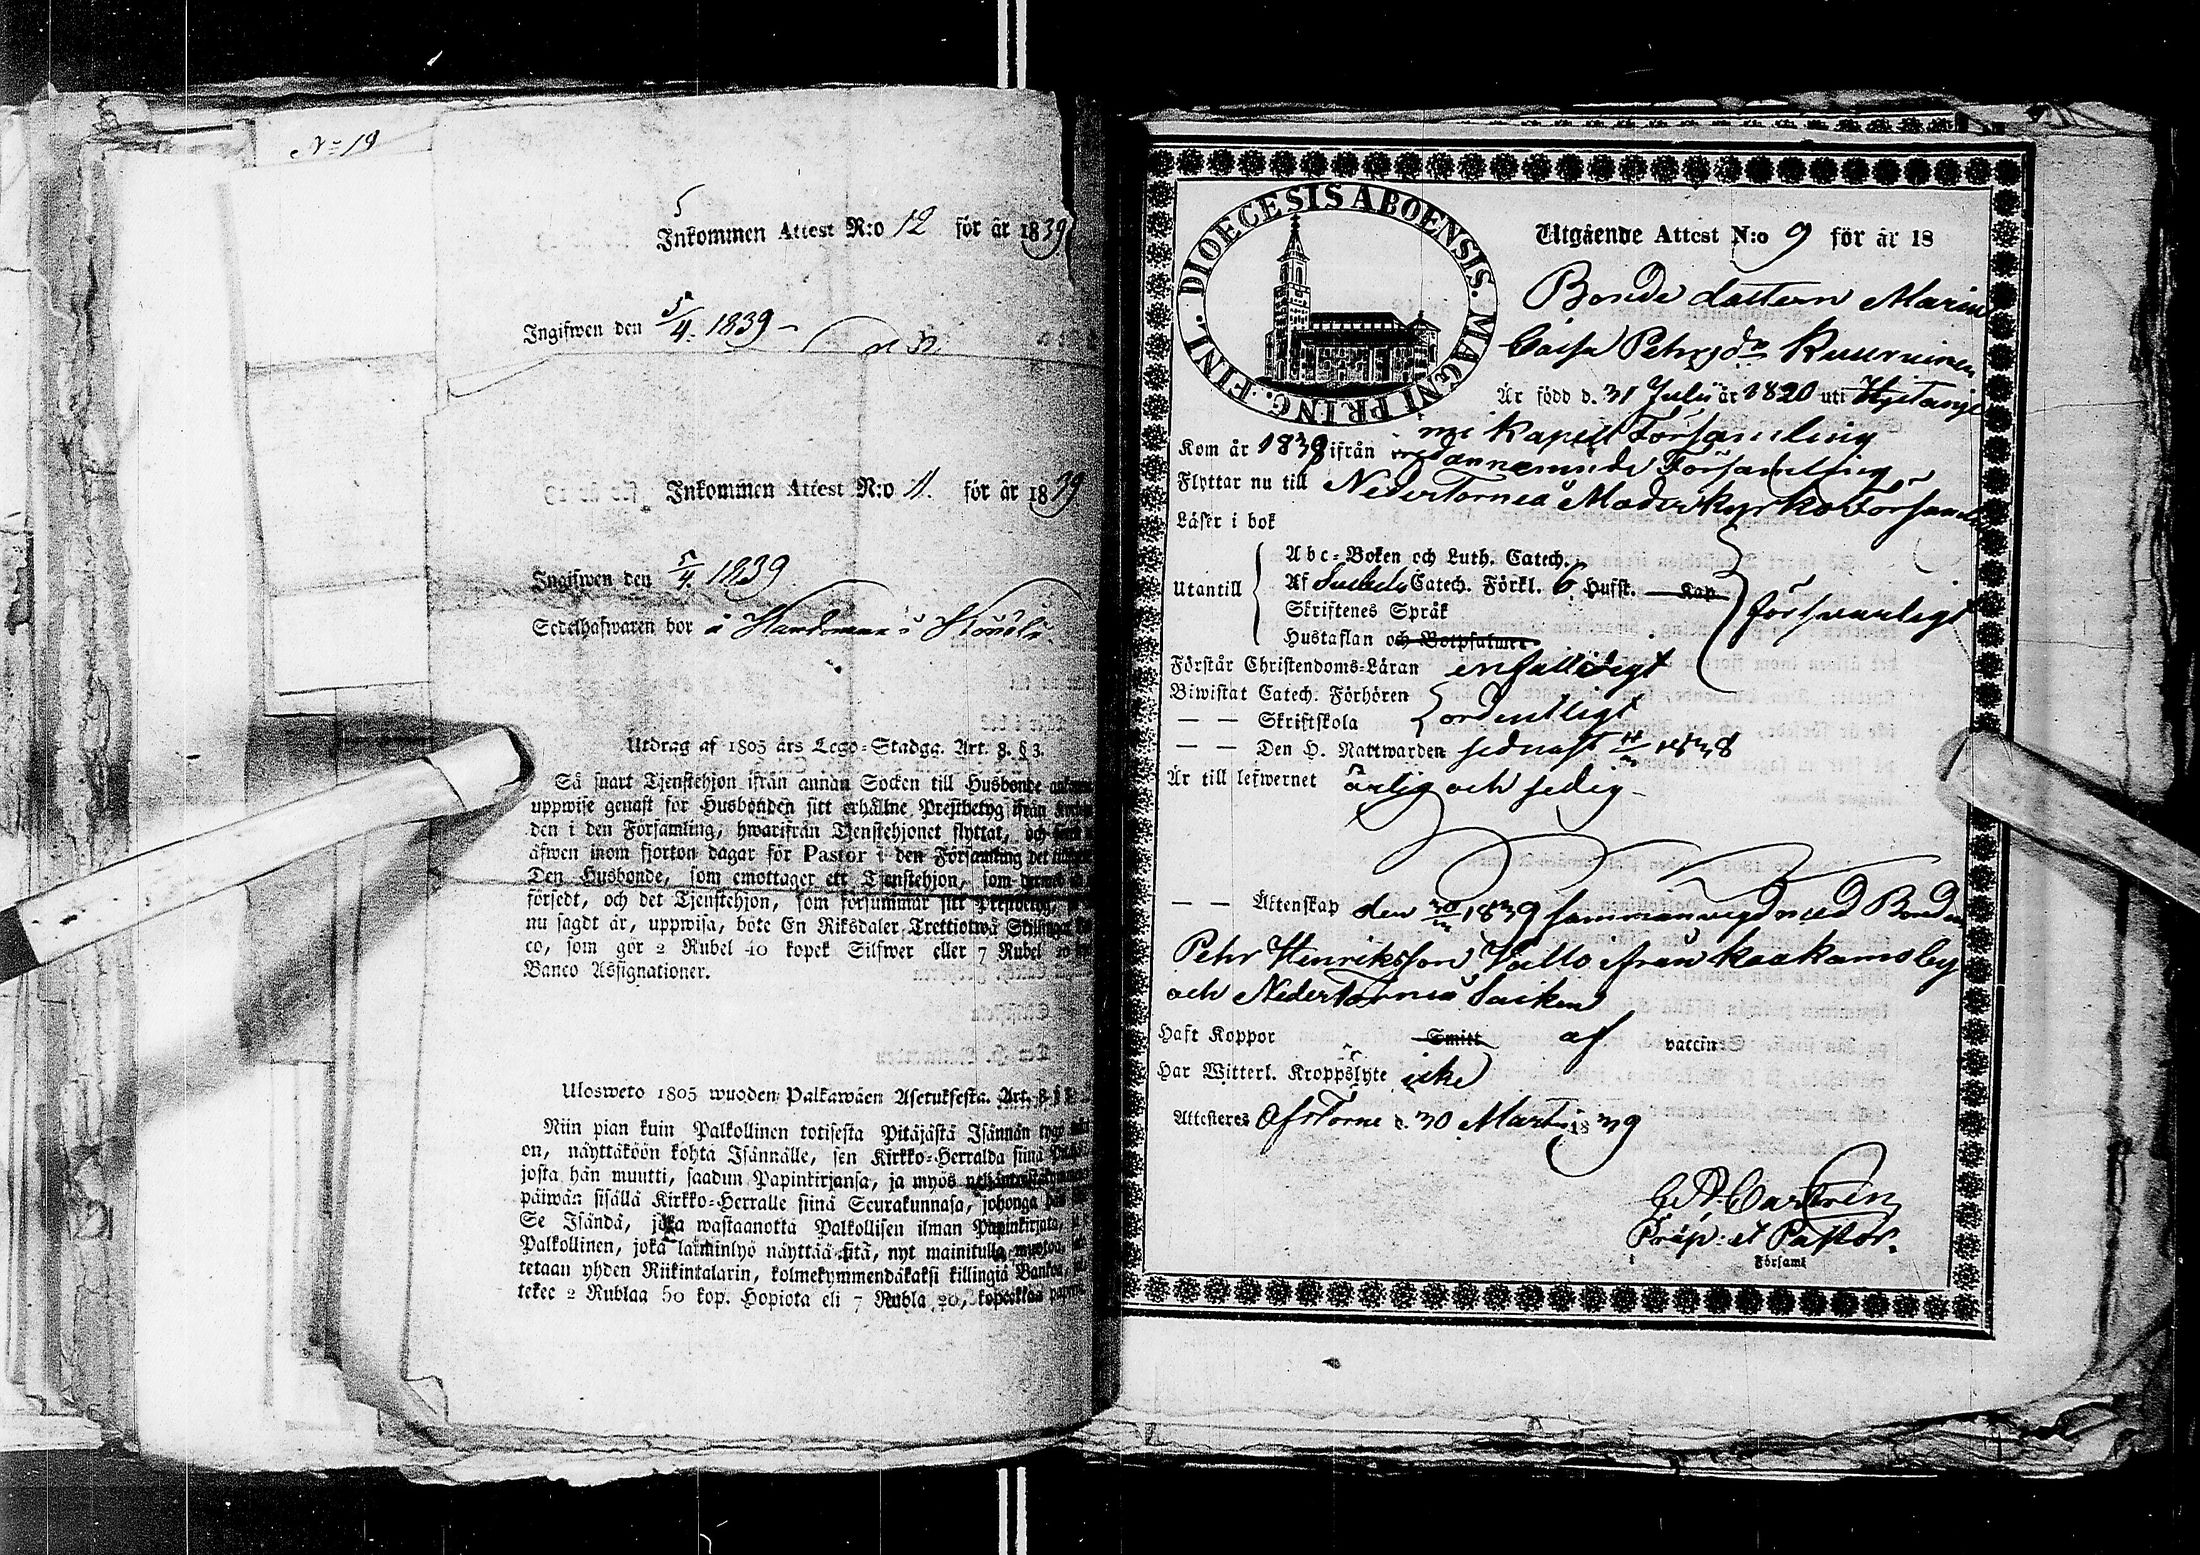 No 19
Inkommen Attest N:o 12 för år 1839
Ingifwen den 5/4 1839
Inkommen Attest N:o 11. för år 1839
Ingifwen den 5/4. 1839
Sedelhafwaren bor å
Utdrag af 1805 års Lego-Stadga. Art. 8. § 3.
Så snart Tjenstehjon ifrån annan Socken till Husbonde
uppwise genast för Husbonden sitt erhållne Prestbetyg ifrån
den i den Församling, hwarifrån Tjenstehjonet flyttat, och
äfwen inom fjorton dagar för Pastor i den Församling det
Den Husbonde, som emottager ett Tjenstehjon, som
försedt, och det Tjenstehjon, som försummar sitt Prestbetyg,
nu sagdt är, uppwisa, böte En Riksdaler Trettiotwå Skillingar
co, som gör 2 Rubel 40 kopek Silfwer eller 7 Rubel 20
Banco Assignationer.
Ulosweto 1805 wuoden Palkawäen Asetuksesta. Art. 8 §
Niin pian kuin Palkollinen totisesta Pitäjästä Isännän tygö
on, näyttäköön kohta Isännälle, sen Kirkko-Herralda siinä
josta hän muutti, saadun Papinkirjansa, ja myös
päiwän sisällä Kirkko-Herralle siinä Seurakunnasa, johonga
Se Isändä, joka wastaanotta Palkollisen ilman Papinkirjata,
Palkollinen, joka laiminlyö näyttää sitä, nyt mainitulla muotoa,
tetaan yhden Riikintalarin, kolmekymmendäkaksi killingiä Bankos,
tekee 2 Rublaa 50 kop. Hopiota eli 7 Rubla 20, kopeekkaa
DIOECESIS ABOENSIS. MAGNI PRINC. FINL.
Utgående Attest N:o 9 för år 18
Bonde dottern Maria
Caisa Petersdr Kuurninen
Är född d. 31 Julii år 1820 uti Hjetanje
mi Kapell Församling
Kom år 1839 ifrån ofvannemnde Församling
Flyttar nu till NederTorneå Moderkyrko Församl
Läser i bok
Abc-Boken och Luth. Catech.
Utantill Af Catech. Förkl. 6. Hufst. Kap försvarligt
Skriftenes Språk
Hustaflan och Botpsalmer
Förstår Christendoms-Läran enfalldigt
Biwistat Catech. Förhören ordentligt
— — Skriftskola
— — Den H. Nattwarden sednast 1838
Är till lefwernet ärlig och sedig
— — Äktenskap den 1839 sammanvigd med Bonden
Petr Henriksson Vallo ifrån Kaakamo by
och NederTorneå Socken
Haft Koppor Smitt af vaccin
Har Witterl. Kroppslyte icke
Attesteres ÖfrTorne d. 30 Martii 1839
Castrén
Præp: et Pastor.
i Församl